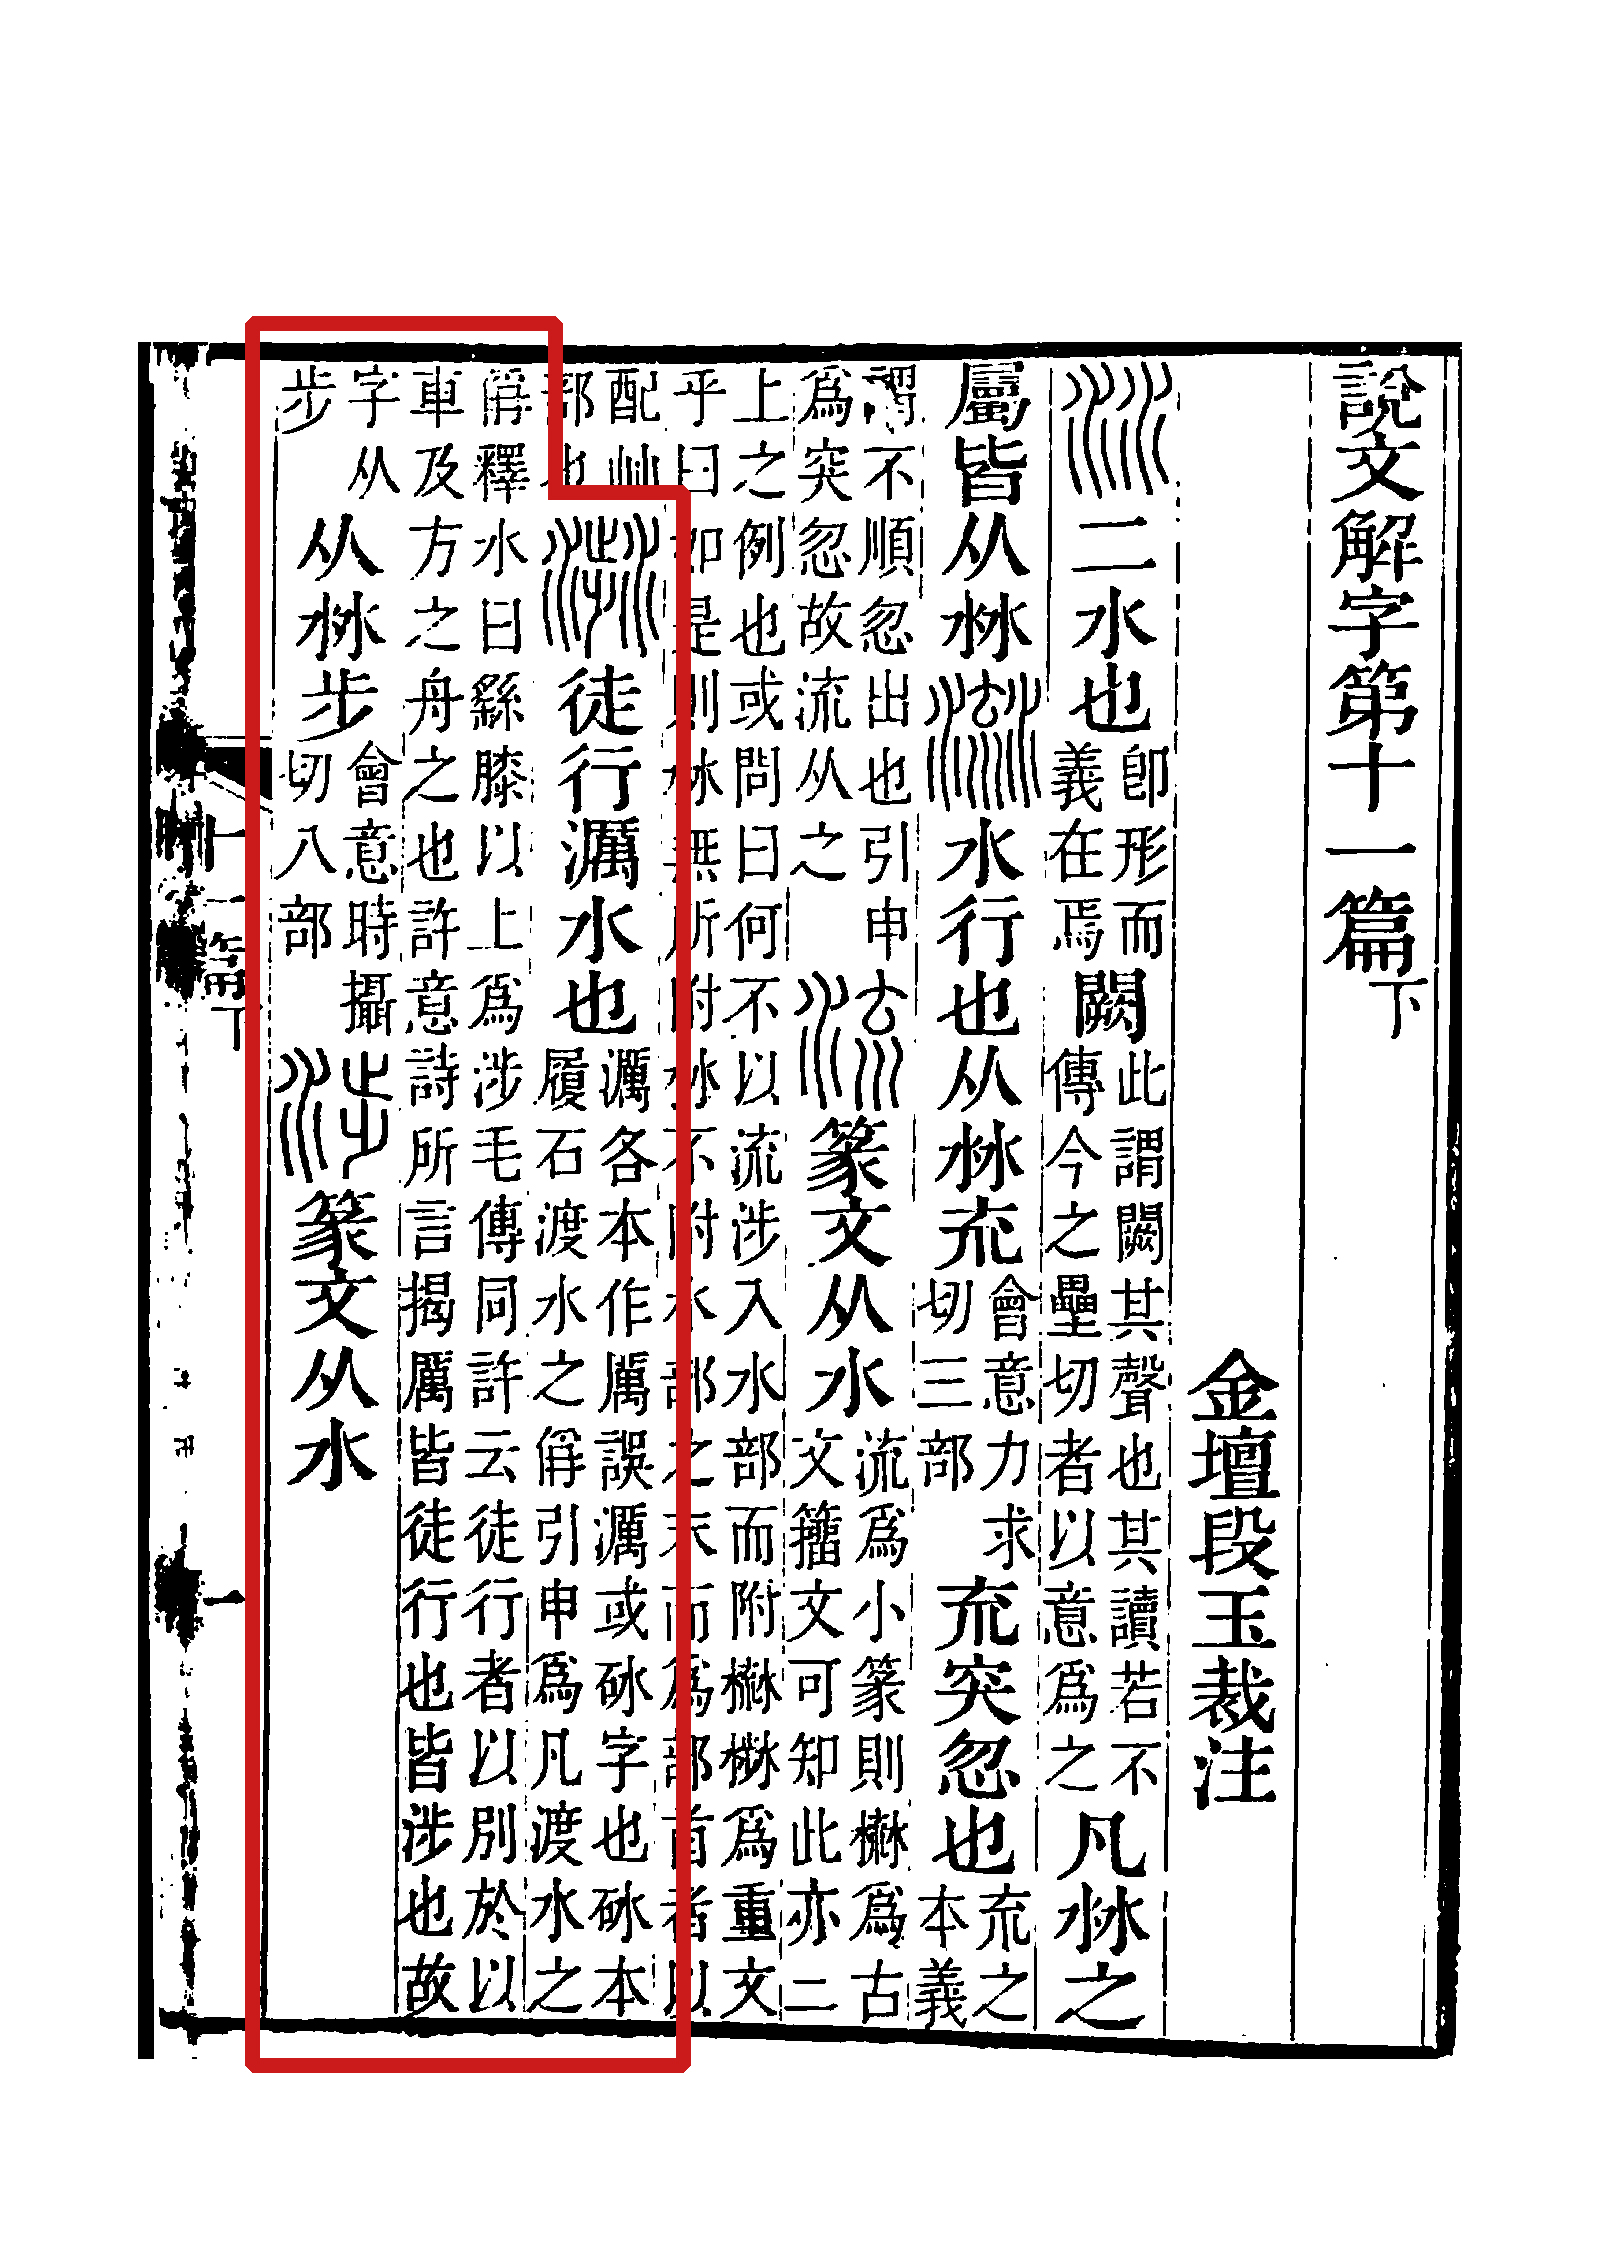 說文解字第十一篇下
金壇段玉裁注
沝二水也卽形而義在焉闕此謂闕其聲也其讀若不傳今之壘切者以意爲之凡沝之
屬皆从沝𣹳水行也从沝㐬會意力求切三部㐬突忽也㐬之本義
謂不順忽出也引申爲突忽故流从之流篆文从水流爲小篆則𣹳爲古文籒文可知此亦二
上之例也或問曰何不以流涉入水部而附𣹳𣻣爲重文乎曰如是則沝無所附沝不附水部之末而爲部首者以
配屾部也𣻣徒行濿水也濿各本作厲誤濿或砅字也砅本履石渡水之偁引申爲凡渡水之
偁釋水曰繇膝以上爲涉毛傳同許云徒行者以別於以車及方之舟之也許意詩所言揭厲皆徒行也皆涉也故
字从步从沝步會意時攝切八部涉篆文从水
十一篇下
一